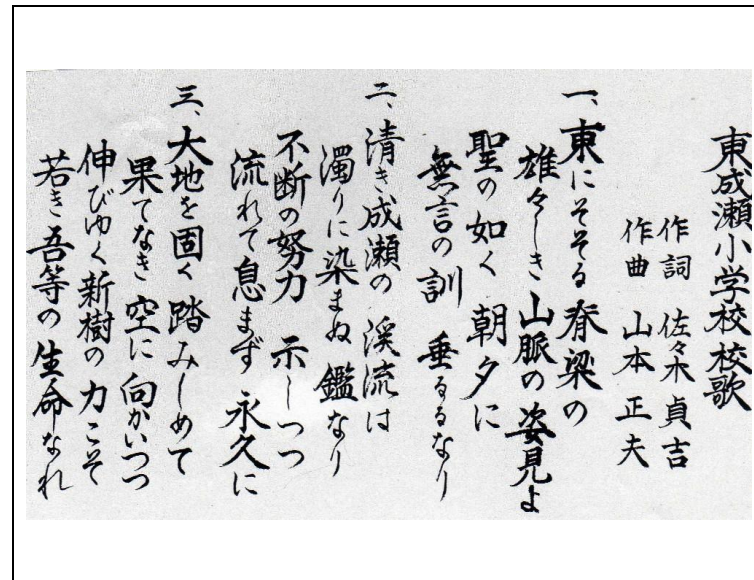 東成瀬小学校校歌
作詞 佐々木 貞吉
作曲 山本 正夫
一、東にそそる 脊梁の
雄々しき 山脈の 姿見よ
聖の如く 朝夕に
無言の訓 垂るるなり
二、清き成瀬の 渓流は
濁りに染まぬ 鑑なり
不断の努力 示しつつ
流れて息まず 永久に
三、大地を固く 踏みしめて
果てなき 空に 向かいつつ
伸びゆく 新樹の 力こそ
若き吾等の 生命なれ